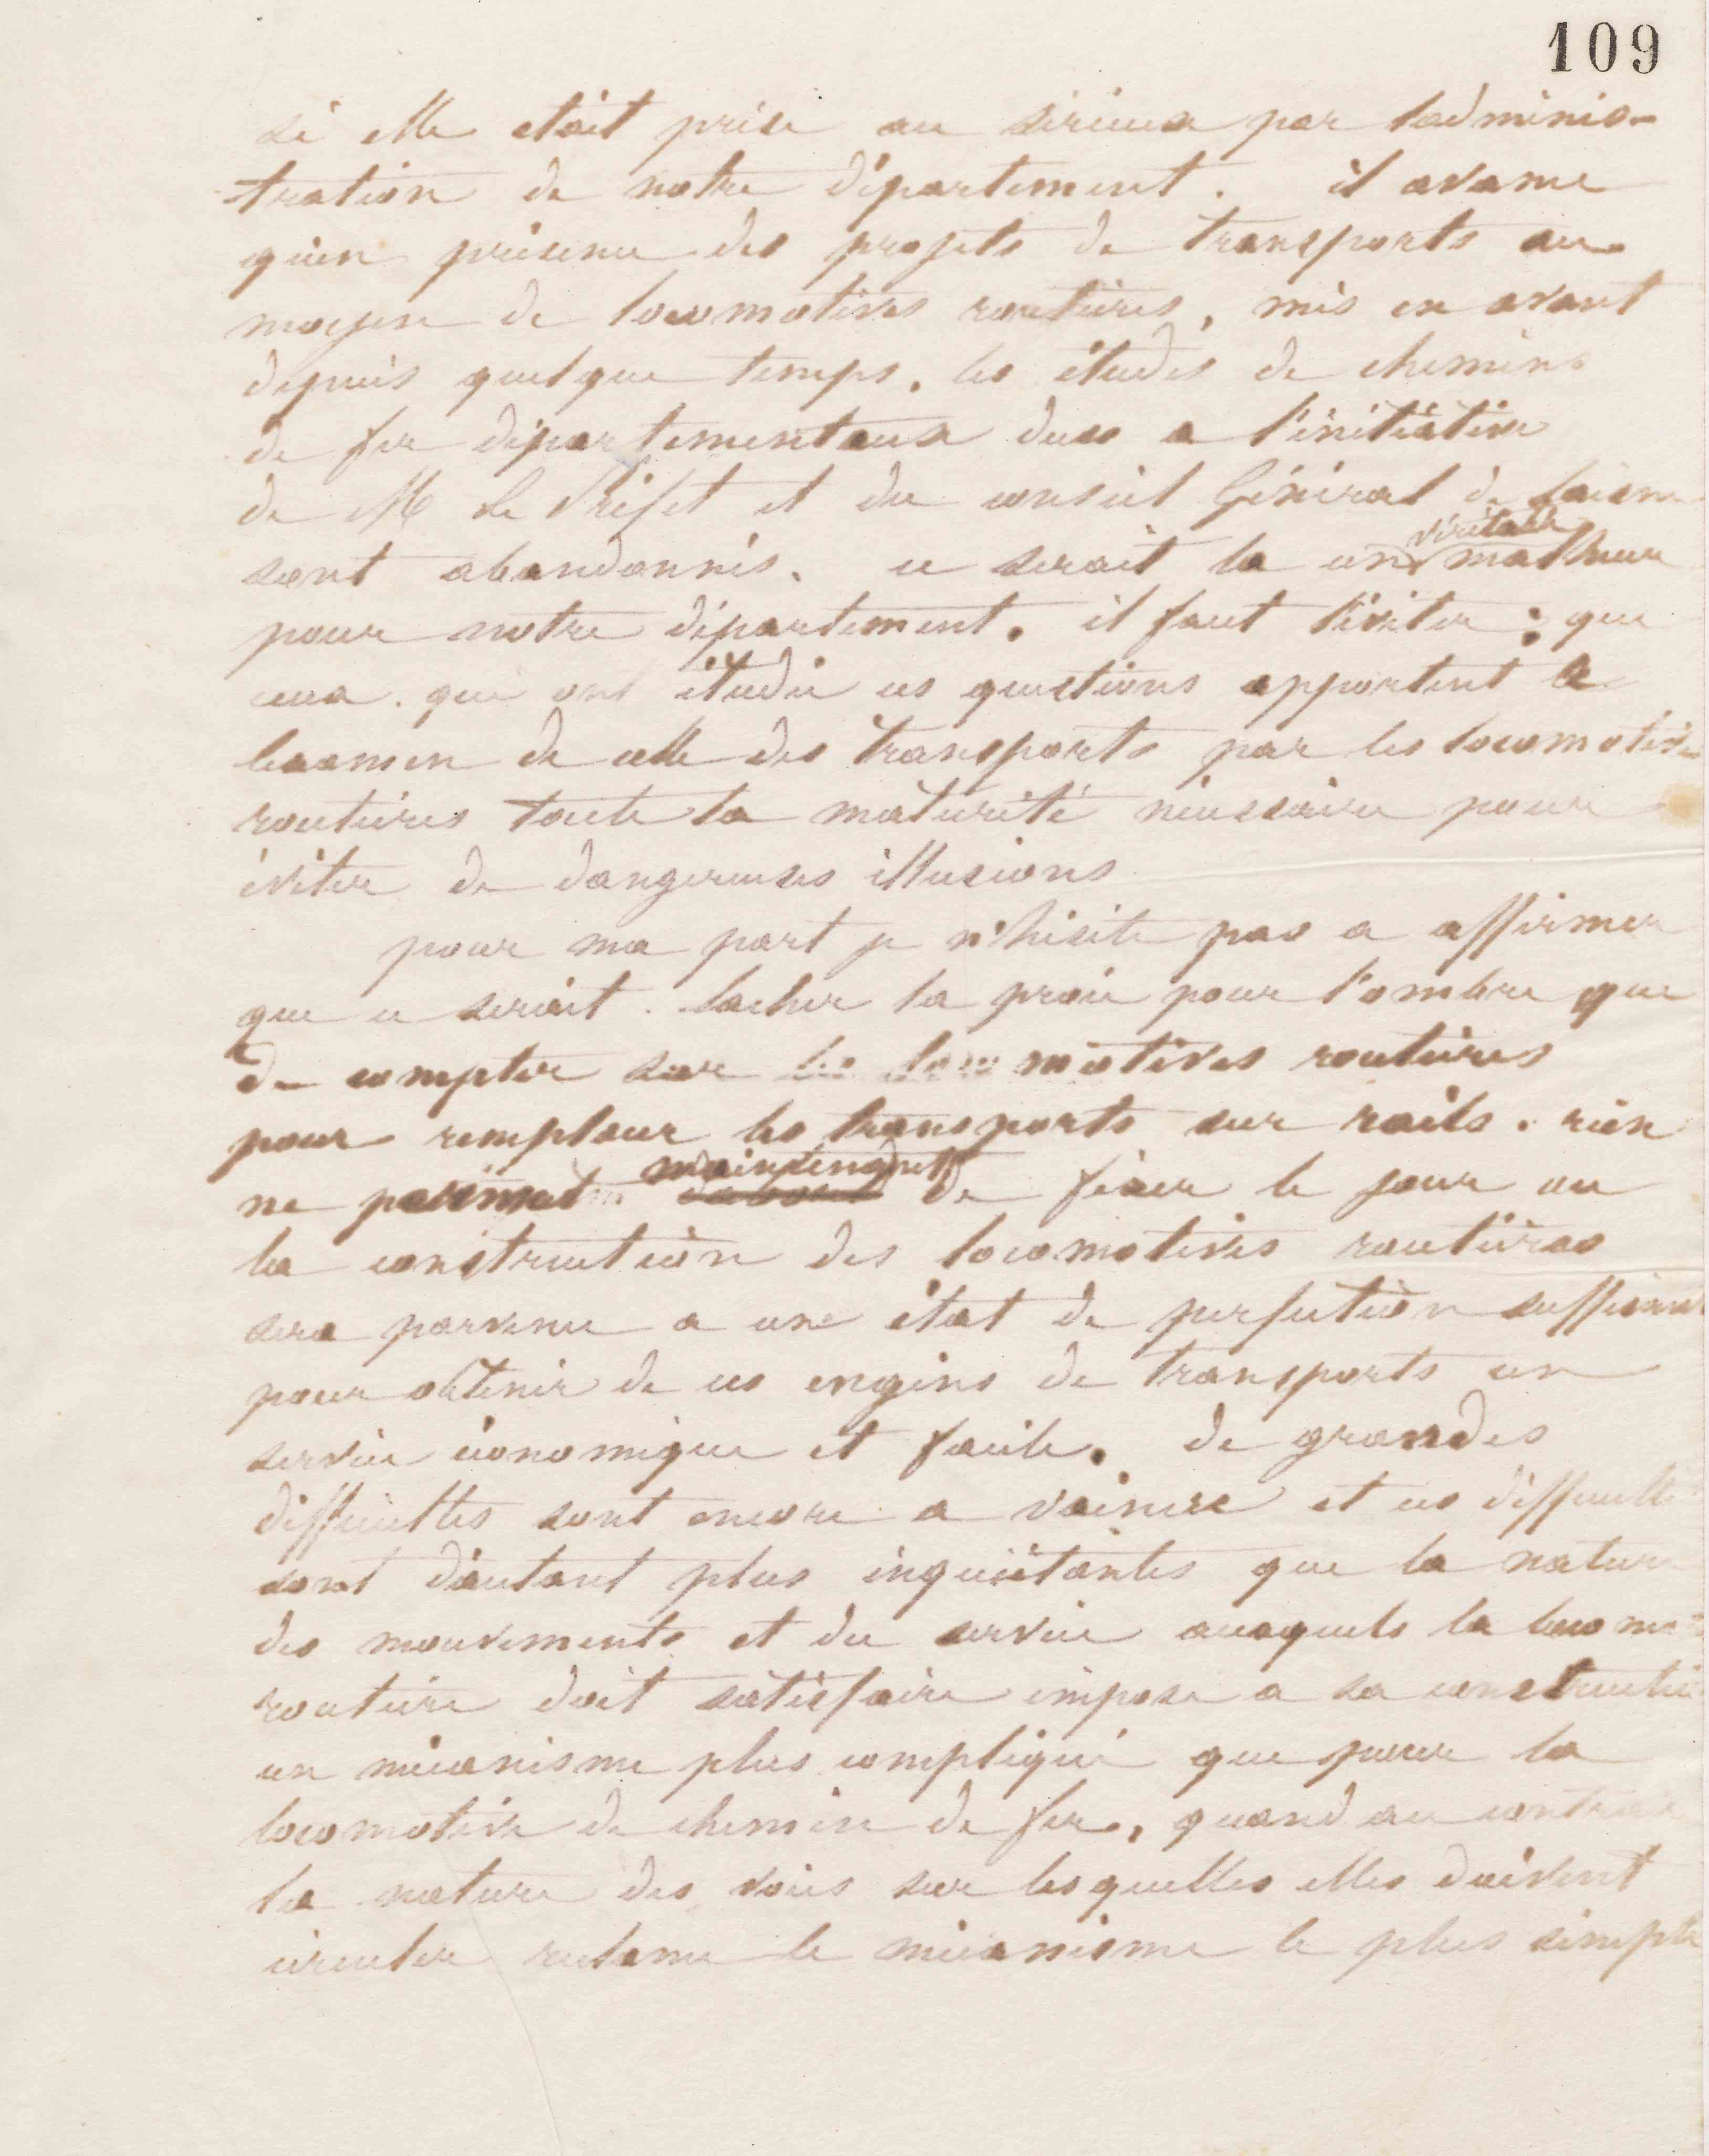 109
si elle etait prise au serieux par ladminis-
tration de notre département. il avance
qu'en présence des projets de transports au
moyen de locomotives routières, mis en avant
depuis quelque temps, les études de chemins
de fer départementaux dues a l'initiative
de M le Préfet et du conseil Général de laisne
sont abandonnés. ce serait la un véritable malheur
pour notre département. il faut l'éviter ; que
ceux qui ont étudié ces questions apportent a
lexamen de celle des transports par les locomotives
routières toute la maturité nécessaire pour
éviter de dangereuses illusions
pour ma part je n'hésite pas a affirmer
que ce serait lacher la proie pour l'ombre que
de compter sur les locomotives routières
pour remplacer les transports sur rails. rien
ne permet maintenant de fixer le jour ou
la construction des locomotives routières
sera parvenue a une état de perfection suffisant
pour obtenir de ces engins de transports un
service économique et facile. de grandes
difficultes sont encore a vaincre et ces difficultés
sont d'autant plus inquiétantes que la nature
des mouvements et du service auxquels la locomo
routière doit satisfaire impose a sa construction
un mécanisme plus compliqué que pour la
locomotive de chemin de fer, quand au contraire
la nature des voies sur lesquelles elles doivent
circuler reclame le mécanisme le plus simple